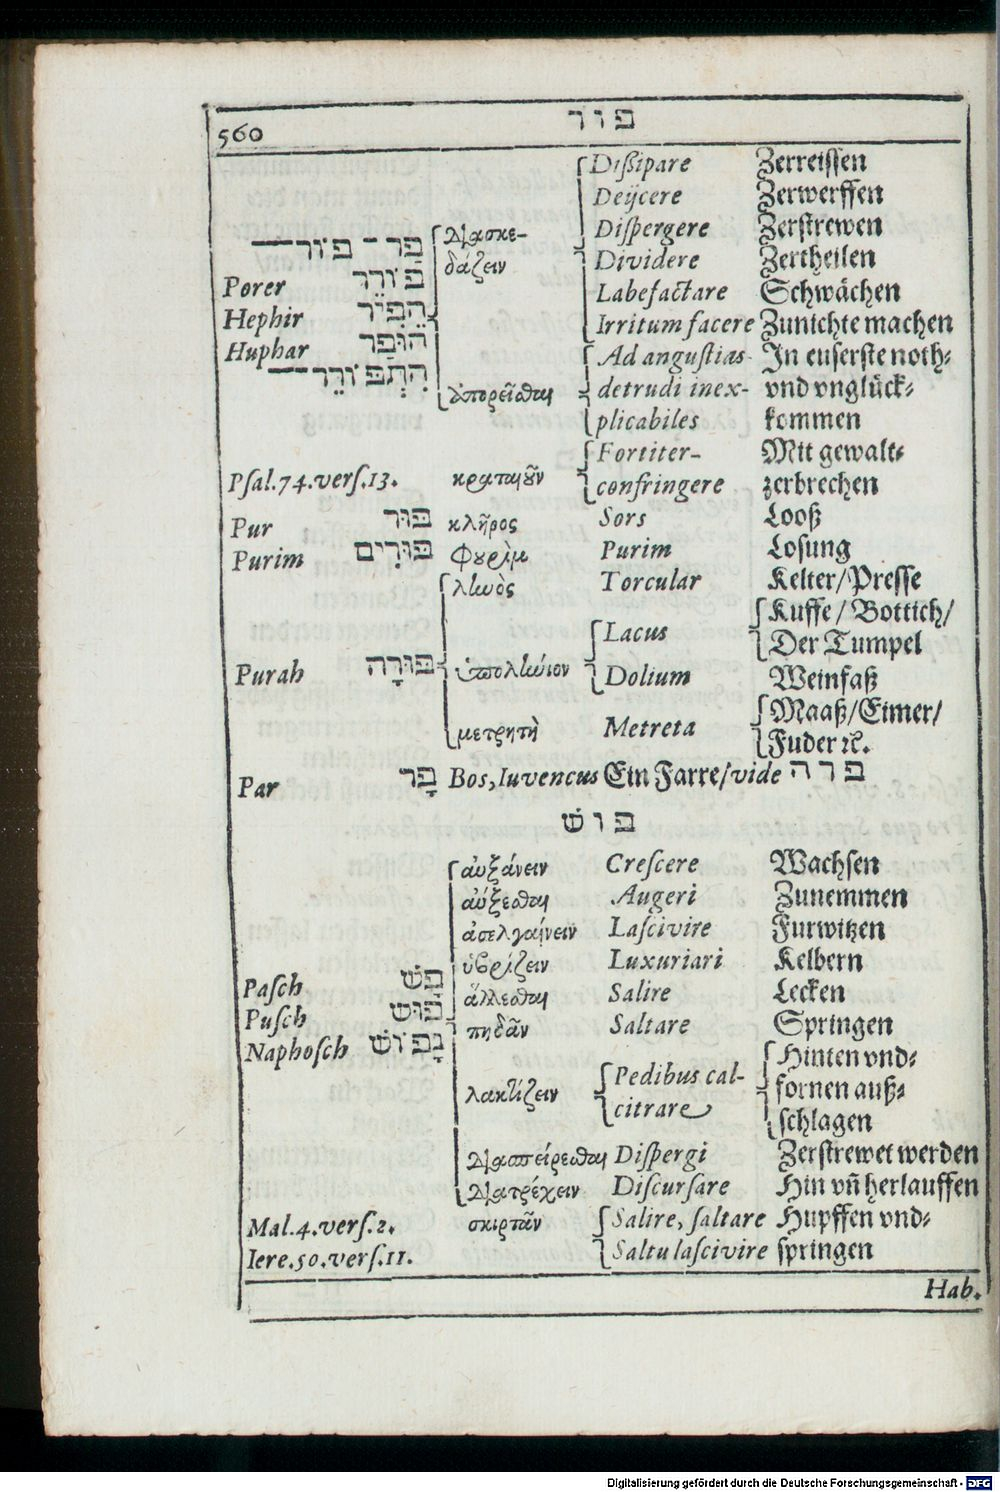 560 פור
Dißipare Zerreissen
Deijcere Zerwerffen
διασκε- Dispergere Zerstrewen
פַר– פור—
δάζειν Dividere Zertheilen
Porer פּוֹרֵר Labefactare Schwächen
Hephir הֵפִיר Irritum facere Zunichte machen
Huphar הוּפַר Ad angustias In euserste noth-
הִתְפּוֹרֵר— ἀπορεῖσθαι detrudi inex- vnd vnglück-
plicabiles kommen
Fortiter- Mit gewalt-
Psal.74.vers.13. κραταιοῦν confringere zerbrechen
Pur פּוּר κλῆρος Sors Looß
Purim פּוּרִים Φουρὶμ Purim Losung
ληνὸς Torcular Kelter/Presse
Kuffe/Bottich/
Lacus Der Tumpel
Purah פּוּרָה ὑπολήνιον Dolium Weinfaß
Maaß/Eimer/
μετρητὴ Metreta Fuder ꝛc.
Par פָּר Bos, Iuvencus Ein Farre/vide פרה
פוּשׁ
αὐξάνειν Crescere Wachsen
αὔξεσθαι Augeri Zunemmen
ἀσελγαίνειν Lascivire Furwitzen
ὑβρίζειν Luxuriari Kelbern
Pasch פָּשׁ ἅλλεσθαι Salire Lecken
Pusch פּוּשׁ πηδᾶν Saltare Springen
Naphosch נָפוֹשׁ
Hinten vnd-
λακτίζειν Pedibus cal- fornen auß-
citrare schlagen
διασπείρεσθαι Dispergi Zerstrewet werden
διατρέχειν Discursare Hin vñ herlauffen
Mal.4.vers.2. σκιρτᾶν Salire, saltare Hupffen vnd-
Iere.50.vers.11. Saltu lascivire springen
Hab.
Digitalisierung gefördert durch die Deutsche Forschungsgemeinschaft - DFG